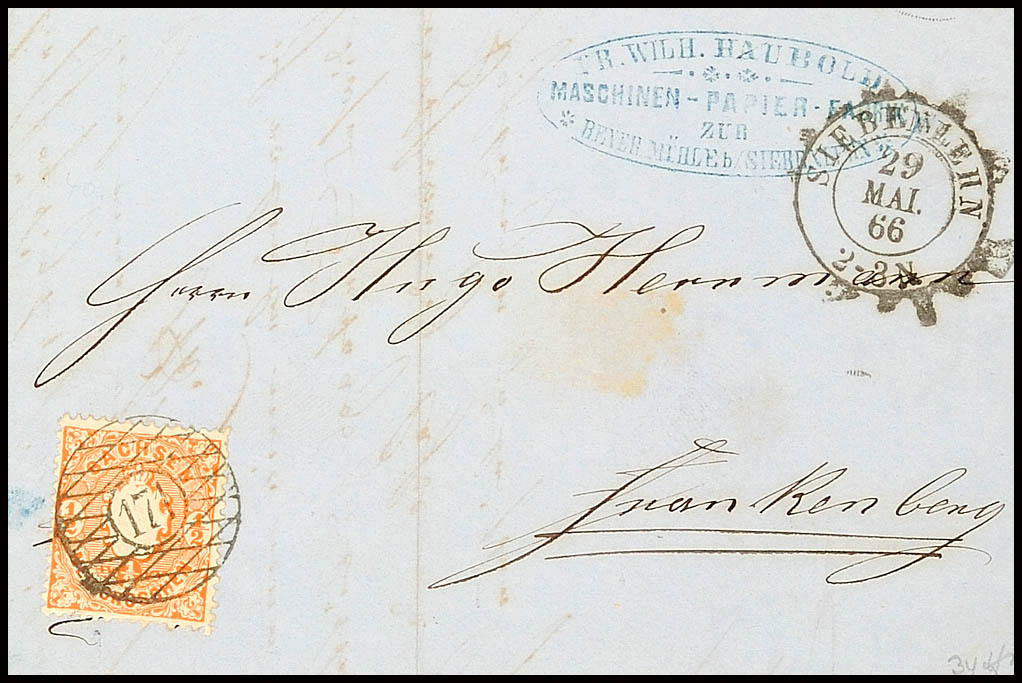 FR. WILH. HAUBOLD
MASCHINEN-PAPIER-FABRIK
ZUR
BEYER MÜHLE b/SIEBENLEHN
SIEBENLEHN
29
MAI.
66
2-3N
Herrn Hugo Herrmann
Frankenberg
SACHSEN
1/2 1/2
17
NEUGROSCHEN
34